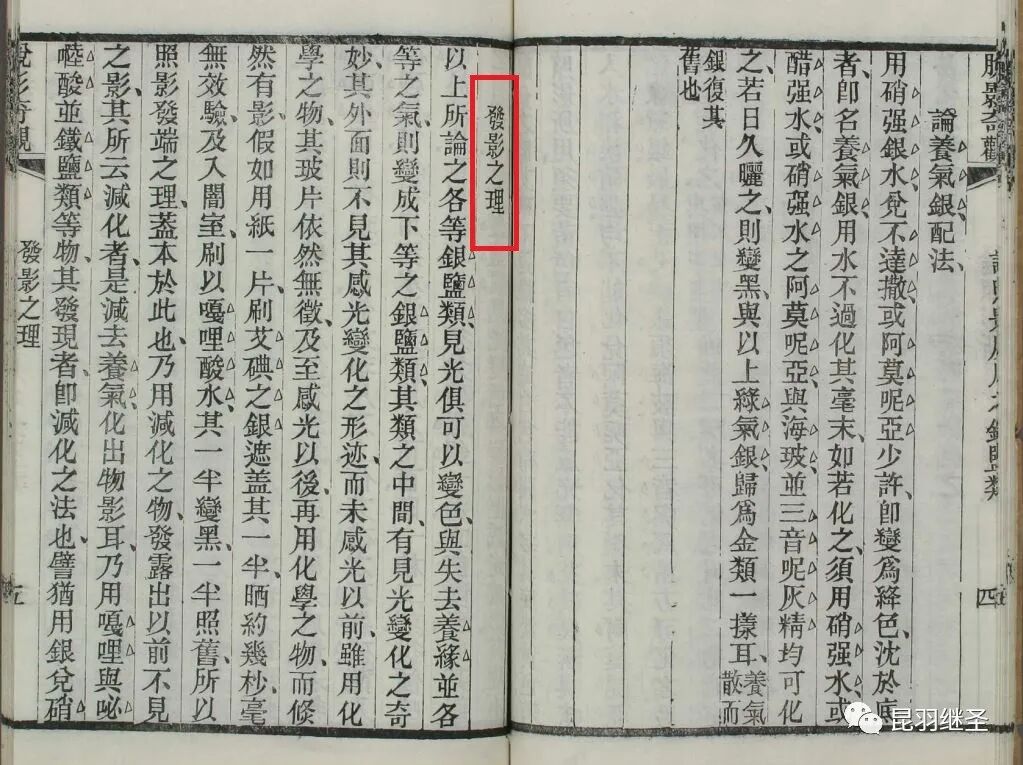 脫影奇觀
論養氣銀配法
用硝强銀水兌不達撒或阿莫呢亞少許卽變爲絳色沈於底
者卽名養氣銀用水不過化其毫末如若化之須用硝强水或
醋强水或硝强水之阿莫呢亞與海玻並三音呢灰精均可化
之若日久曬之則變黑與以上綠氣銀歸爲金類一㨾耳養氣散而
銀復其
舊也
四
發影之理
以上所論之各等銀鹽類見光俱可以變色與失去養綠並各
等之氣則變成下等之銀鹽類其類之中間有見光變化之奇
妙其外面則不見其感光變化之形迹而未感光以前雖用化
學之物其玻片依然無徵及至感光以後再用化學之物而倏
然有影假如用紙一片刷艾碘之銀遮盖其一半晒約幾秒毫
無效驗及入闇室刷以嘎哩酸水其一半變黑一半照舊所以
照影發端之理蓋本於此也乃用減化之物發露出以前不見
之影其所云減化者是減去養氣化出物影耳乃用嘎哩與必
酸並鐵鹽類等物其發現者卽減化之法也譬猶用銀兌硝
脫影奇觀
發影之理
五
昆羽继圣